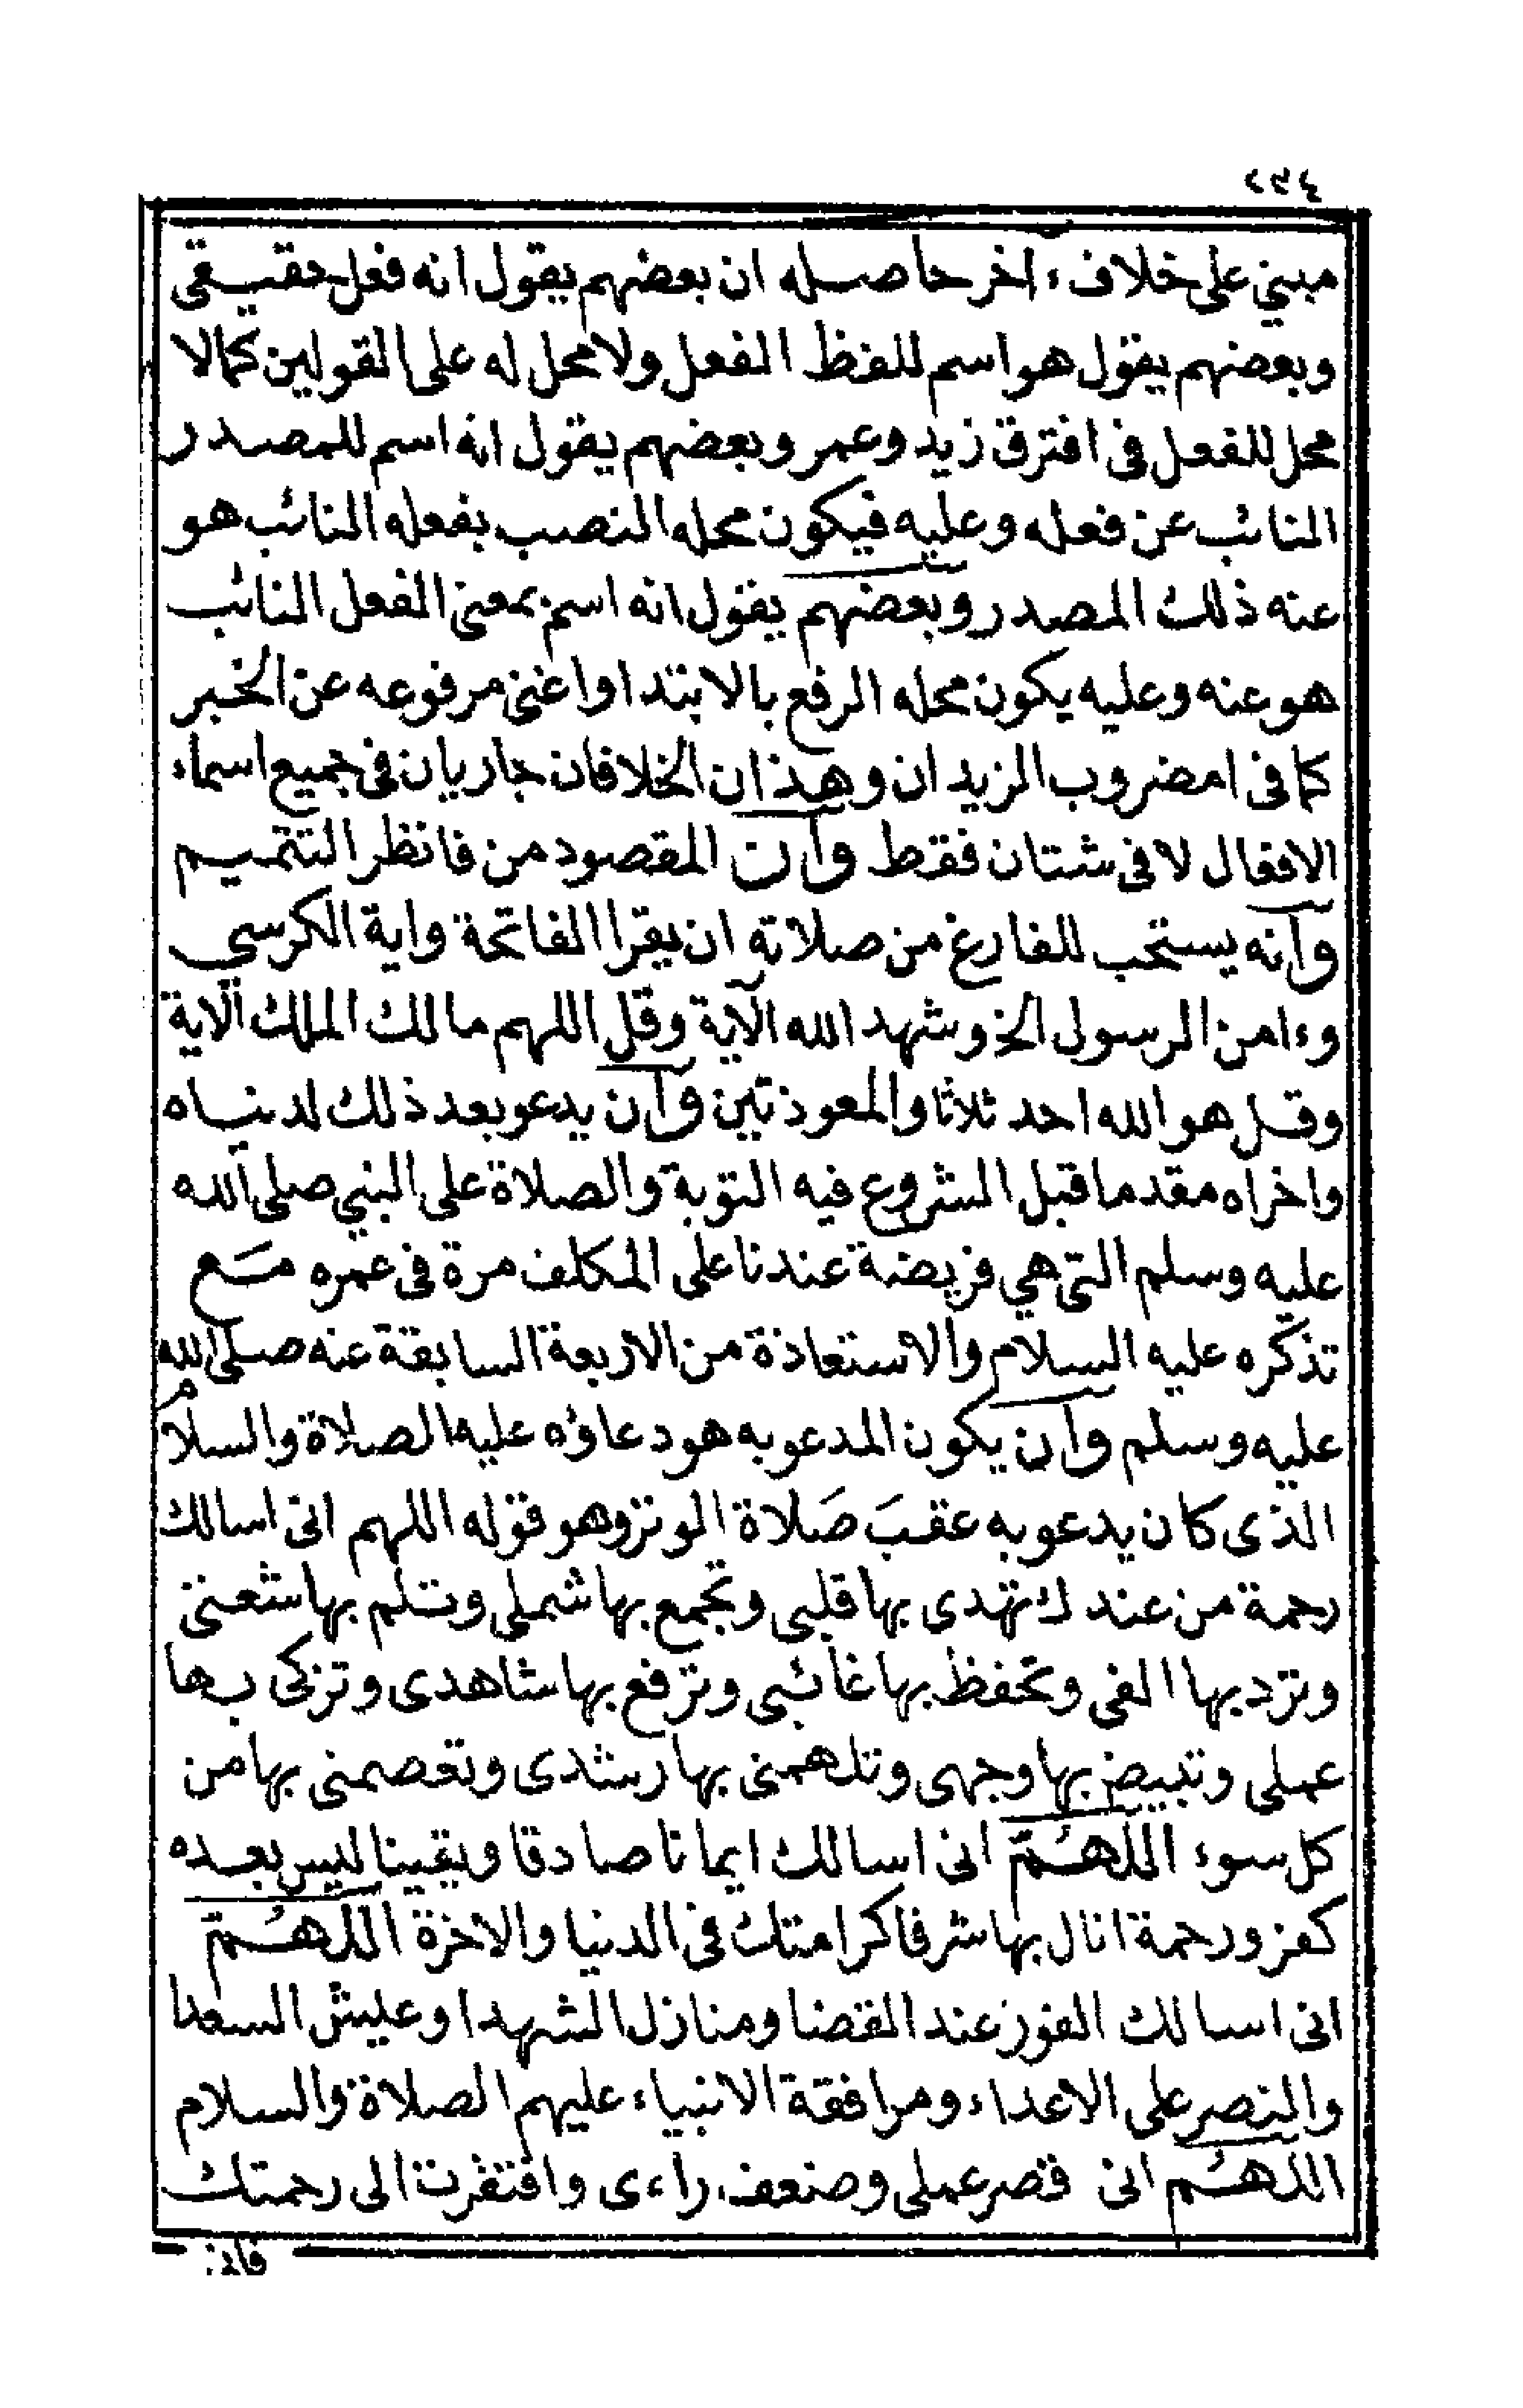 ٢٩٤
مبني على خلاف ءاخر حاصله ان بعضهم يقول انه فعل حقيقي
وبعضهم يقول هو اسم للفظ الفعل ولا محل له على القولين كما لا
محل للفعل فى افترق زيد وعمر وبعضهم يقول انه اسم للمصدر
النائب عن فعله وعليه فيكون محله النصب بفعله النائب هو
عنه ذلك المصدر وبعضهم يقول انه اسم بمعنى الفعل النائب
هو عنه وعليه يكون محله الرفع بالابتدا واغنى مرفوعه عن الخبر
كما فى امضروب الزيدان وهذان الخلافان جاريان فى جميع اسماء
الافعال لا فى شتان فقط وان المقصود من فانظر التتميم
وانه يستحب للفارغ من صلاته ان يقرا الفاتحة واية الكرسي
وءامن الرسول الخ وشهد الله الآية وقل اللهم مالك الملك الآية
وقل هو الله احد ثلاثا والمعوذتين وان يدعو بعد ذلك لدنياه
واخراه مقدما قبل الشروع فيه التوبة والصلاة على النبي صلى الله
عليه وسلم التى هي فريضة عندنا على المكلف مرة فى عمره مع
تذكره عليه السلام والاستعاذة من الاربعة السابقة عنه صلى الله
عليه وسلم وان يكون المدعو به هو دعاؤه عليه الصلاة والسلام
الذى كان يدعو به عقب صلاة الوتر وهو قوله اللهم انى اسالك
رحمة من عندك تهدى بها قلبى وتجمع بها شملى وتلم بها شعثى
وترد بها الفى وتحفظ بها غائبى وترفع بها شاهدى وتزكى بها
عملى وتبيض بها وجهى وتلهمنى بها رشدى وتعصمنى بها من
كل سوء اللهُمّ انى اسالك ايمانا صادقا ويقينا ليس بعده
كفر ورحمة انال بها شرف كرامتك فى الدنيا والاخرة اللهُمّ
انى اسالك الفوز عند القضا ومنازل الشهدا وعيش السعدا
والنصر على الاعداء ومرافقة الانبياء عليهم الصلاة والسلام
اللهُم انى قصر عملى وضعف راءى وافتقرت الى رحمتك